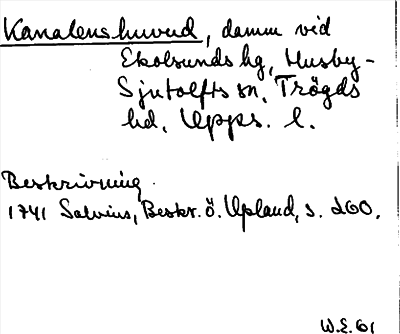 Kanalenshuvud, damm vid
Ekolsunds hg, Husby-
Sjutolfts sn, Trögds
hd, Upps. l.
Beskrivning.
1741 Salvius, Beskr. ö. Upland, s. 260.
W.E. 61